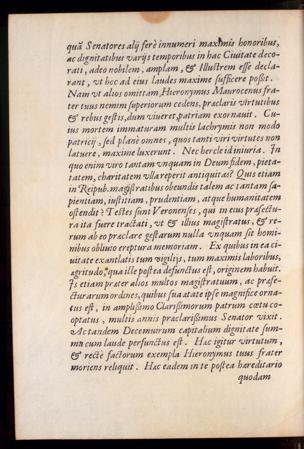 quã Senatores alij ferè innumeri maximis honoribus,
ac dignitatibus varijs temporibus in hac Ciuitate deco-
rati, adeo nobilem, amplam, & Illustrem esse decla-
rant, vt hoc ad eius laudes maxime sufficere possit.
Nam vt alios omittam, Hieronymus Maurocenus fra-
ter tuus nemini superiorum cedens, praclaris virtutibus
& rebus gestis, dum viueret, patriam exornauit. Cu-
ius mortem immaturam multis lachrymis non modo
patricij, sed planè omnes, quos tanti viri virtutes non
latuere, maxime luxerunt. Nec hercle id iniuria. In
quo enim viro tantam vnquam in Deum fidem, pieta-
tatem, charitatem vlla reperit antiquitas? Quis etiam
in Reipub. magistratibus obeundis talem ac tantam sa-
pientiam, iustitiam, prudentiam, atque humanitatem
ostendit? Testes sunt Veronenses, qui in eius prafectu-
ra ita fuere tractati, vt & illius magistratus, & re-
rum ab eo praclare gestarum nulla vnquam sit homi-
nibus obliuio ereptura memoriam. Ex quibus in ea ci-
uitate exantlatis tum vigilijs, tum maximis laboribus,
agritudo, qua ille postea defunctus est, originem habuit.
Is etiam prater alios multos magistratuum, ac prafe-
cturarum ordines, quibus sua atate ipse magnifice orna-
tus est, in amplissimo Clarissimorum patrum cœtu co-
optatus, multis annis praclarissimus Senator vixit.
Ac tandem Decemuirum capitalium dignitate sum-
ma cum laude perfunctus est. Hac igitur virtutum,
& rectè factorum exempla Hieronymus tuus frater
moriens reliquit. Hac eadem in te postea hareditario
quodam